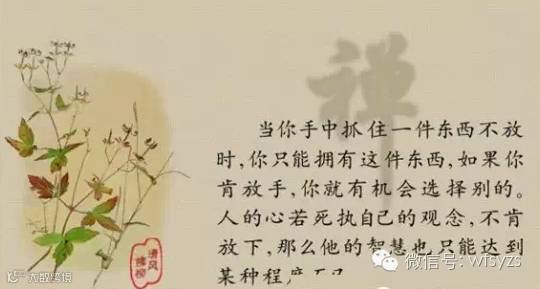 禅
当你手中抓住一件东西不放
时,你只能拥有这件东西,如果你
肯放手,你就有机会选择别的。
人的心若死执自己的观念,不肯
放下,那么他的智慧也只能达到
某种程度而已
清风
拂柳
微信号: wfsyzs